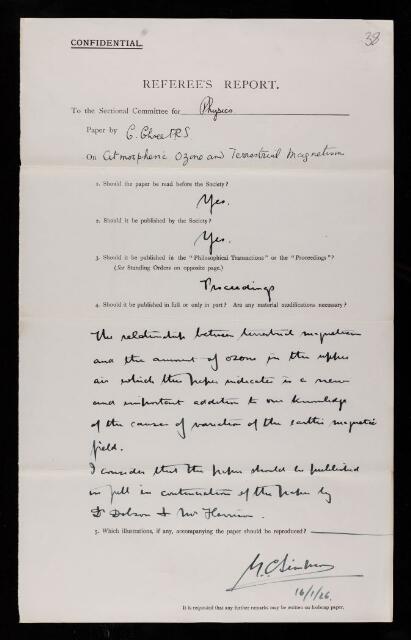 38
CONFIDENTIAL.
REFEREE'S REPORT.
To the Sectional Committee for Physics
Paper by C. Chree FRS
On Atmospheric Ozone and Terrestrial Magnetism
1. Should the paper be read before the Society?
Yes.
2. Should it be published by the Society?
Yes.
3. Should it be published in the "Philosophical Transactions" or the "Proceedings"?
(See Standing Orders on opposite page.)
Proceedings
4. Should it be published in full or only in part? Are any material modifications necessary?
The relationship between terrestrial magnetism
and the amount of ozone in the upper
air which this paper indicates is a new
and important addition to our knowledge
of the causes of variation of the earth's magnetic
field.
I consider that the paper should be published
in full in continuation of the paper by
Dr Dobson & Mr Harrison.
5. Which illustrations, if any, accompanying the paper should be reproduced?
16/1/26.
It is requested that any further remarks may be written on foolscap paper.